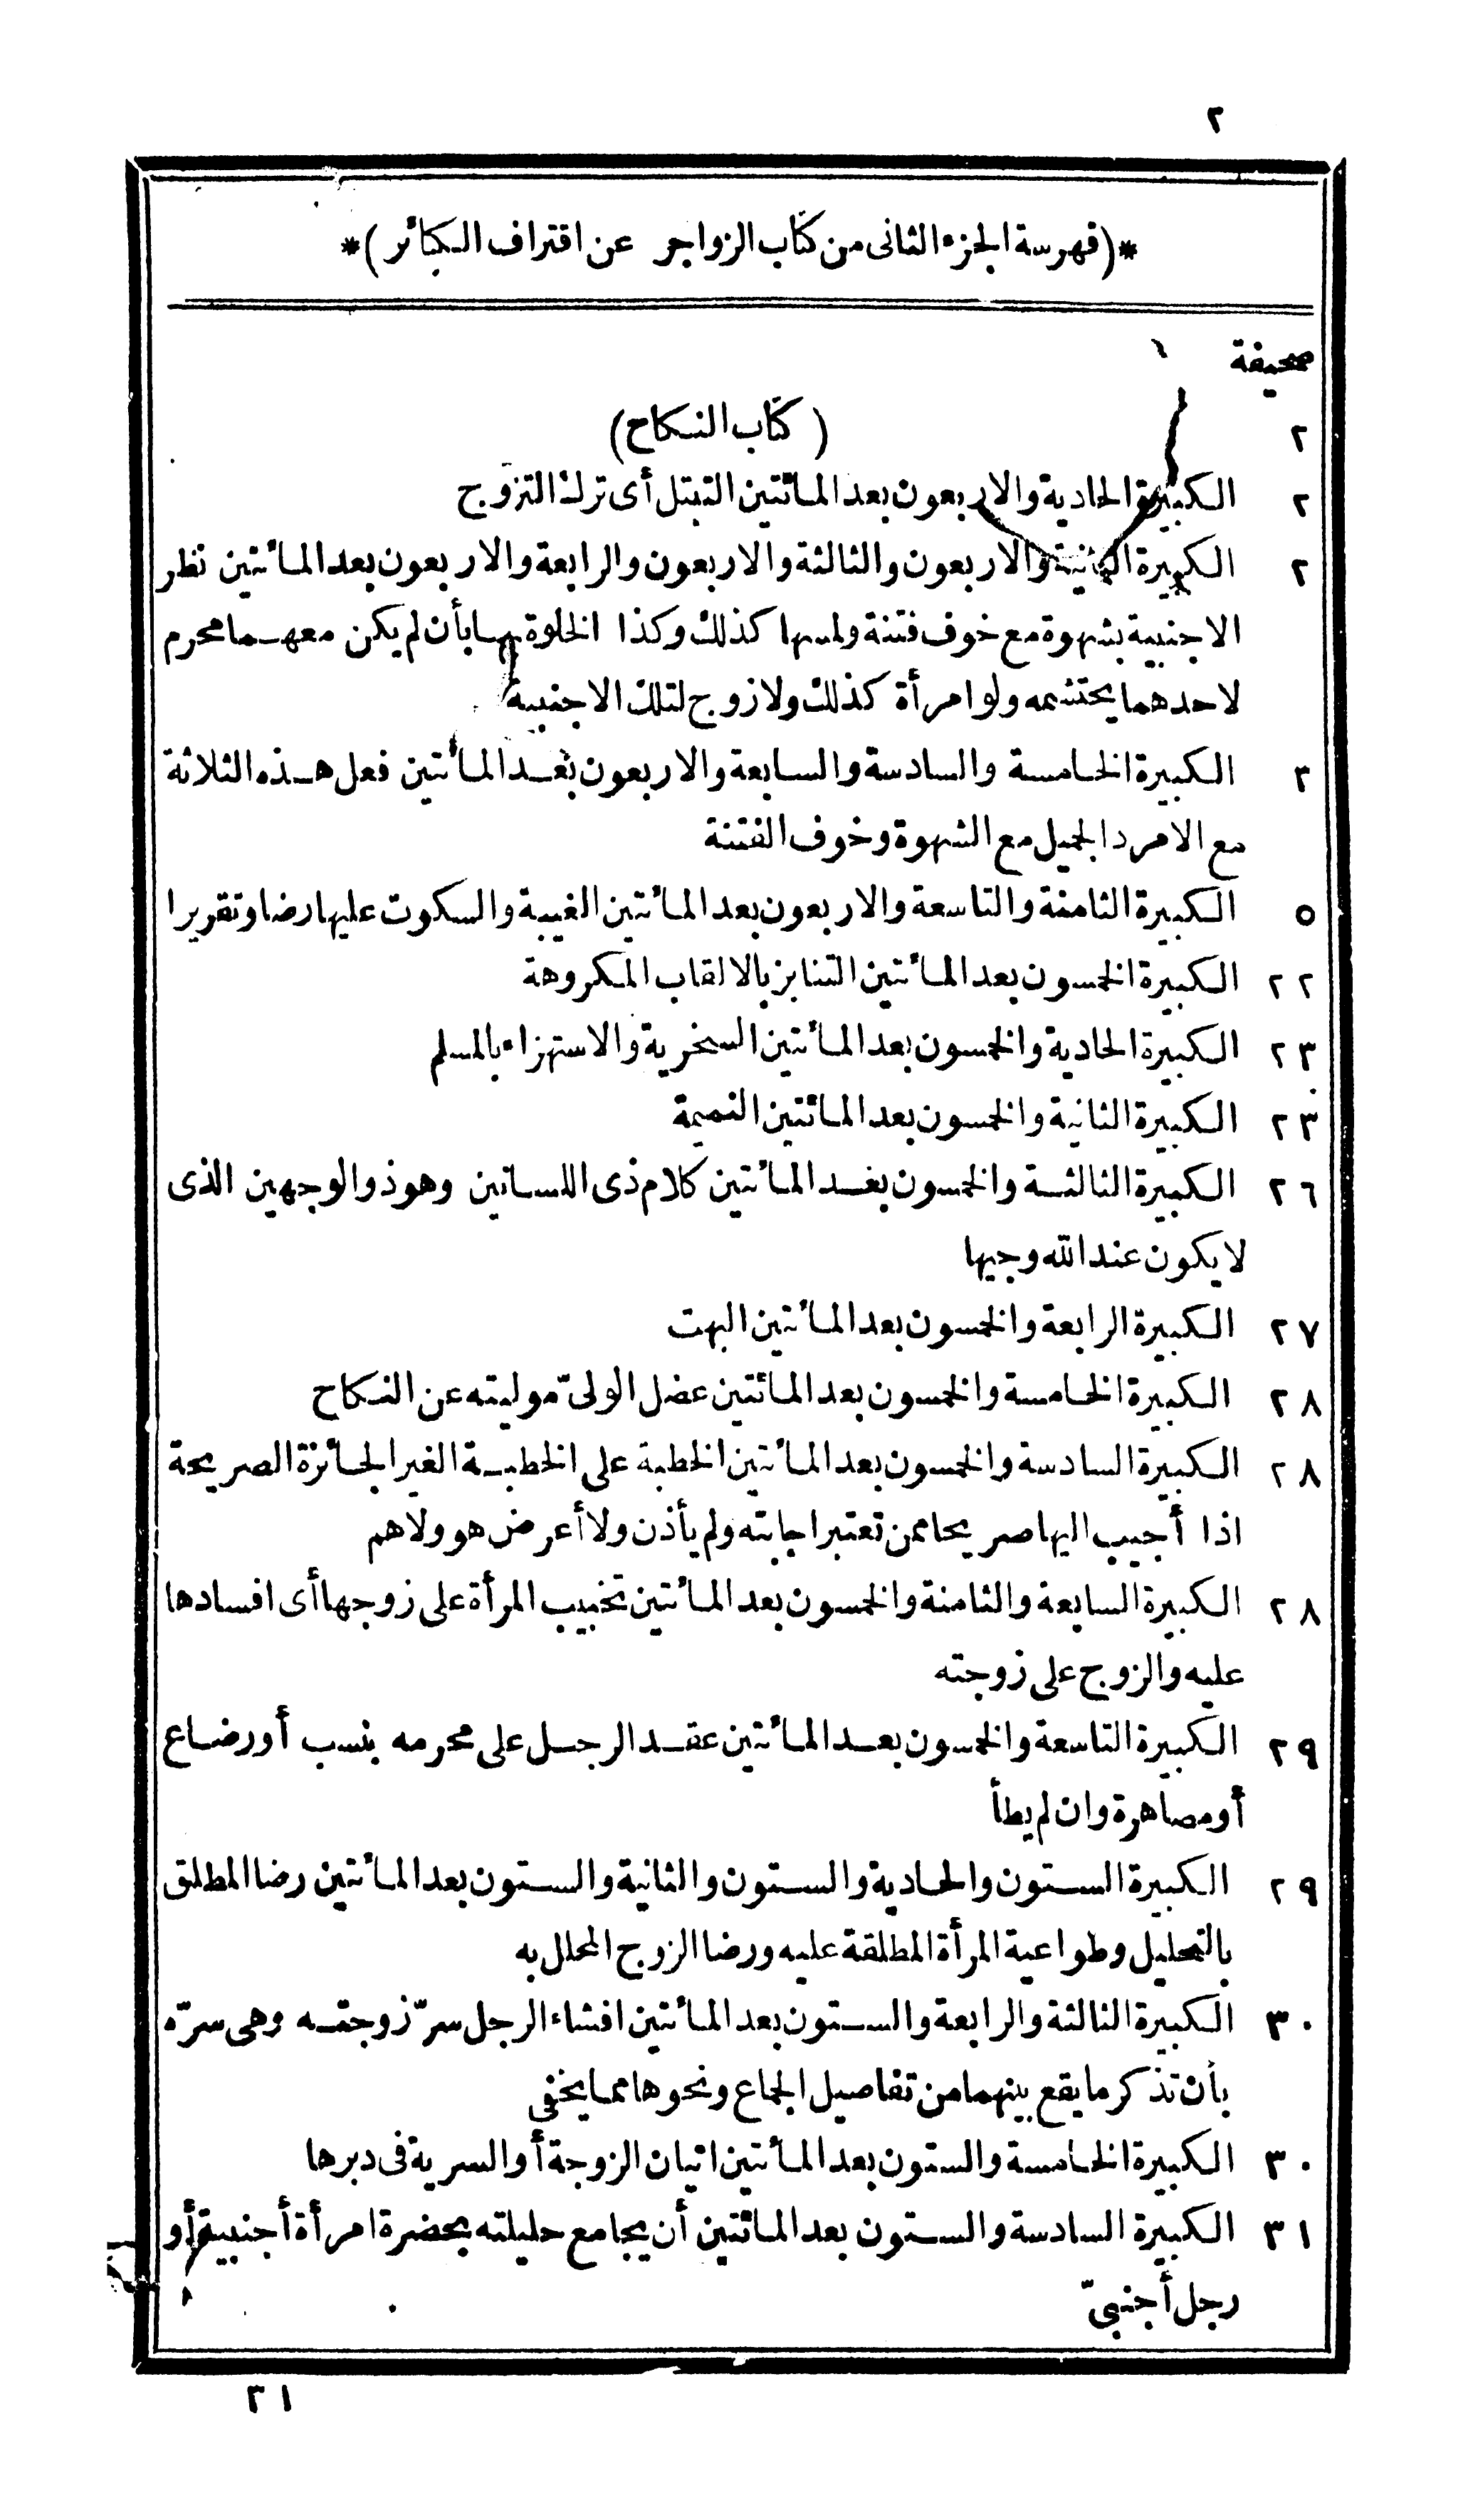 ٢
*(فهرسة الجزء الثانى من كتاب الزواجر عن اقتراف الكبائر)*
صحيفة
٢ (كتاب النكاح)
٢ الكبيرة الحادية والاربعون بعد المائتين التبتل أى ترك التزوج
٢ الكبيرة الثانية والاربعون والثالثة والاربعون والرابعة والاربعون بعد المائتين نظر
الاجنبية بشهوة مع خوف فتنة ولمسها كذلك وكذا الخلوة بها بأن لم يكن معهما محرم
لاحدهما يحتشمه ولو امرأة كذلك ولا زوج لتلك الاجنبية
٣ الكبيرة الخامسة والسادسة والسابعة والاربعون بعد المائتين فعل هذه الثلاثة
مع الامرد الجميل مع الشهوة وخوف الفتنة
٥ الكبيرة الثامنة والتاسعة والاربعون بعد المائتين الغيبة والسكوت عليها رضا وتقريرا
٢٢ الكبيرة الخمسون بعد المائتين التنابز بالالقاب المكروهة
٢٣ الكبيرة الحادية والخمسون بعد المائتين السخرية والاستهزاء بالمسلم
٢٣ الكبيرة الثانية والخمسون بعد المائتين النميمة
٢٦ الكبيرة الثالثة والخمسون بعد المائتين كلام ذى اللسانين وهو ذو الوجهين الذى
لا يكون عند الله وجيها
٢٧ الكبيرة الرابعة والخمسون بعد المائتين البهت
٢٨ الكبيرة الخامسة والخمسون بعد المائتين عضل الولىّ موليته عن النكاح
٢٨ الكبيرة السادسة والخمسون بعد المائتين الخطبة على الخطبة الغير الجائزة الصريحة
اذا أجيب اليها صريحا ممن تعتبر اجابته ولم يأذن ولا أعرض هو ولا هم
٢٨ الكبيرة السابعة والثامنة والخمسون بعد المائتين تخبيب المرأة على زوجها أى افسادها
عليه والزوج على زوجته
٢٩ الكبيرة التاسعة والخمسون بعد المائتين عقد الرجل على محرمه بنسب أو رضاع
أو مصاهرة وان لم يطأ
٢٩ الكبيرة الستون والحادية والستون والثانية والستون بعد المائتين رضا المطلق
بالتحليل وطواعية المرأة المطلقة عليه ورضا الزوج المحلل به
٣٠ الكبيرة الثالثة والرابعة والستون بعد المائتين افشاء الرجل سرّ زوجته وهى سرّه
بأن تذكر ما يقع بينهما من تفاصيل الجماع ونحوها مما يخفى
٣٠ الكبيرة الخامسة والستون بعد المائتين اتيان الزوجة أو السرية فى دبرها
٣١ الكبيرة السادسة والستون بعد المائتين أن يجامع حليلته بحضرة امرأة أجنبية أو
رجل أجنبىّ
٣١